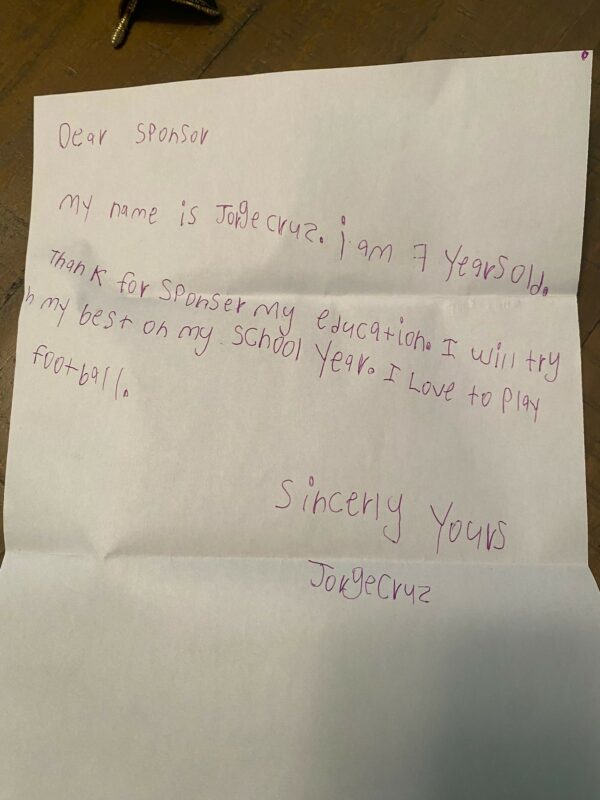 Dear Sponsor
My name is Jorge cruz. i am 7 years old.
Thank for Sponser my education. I will try
n my best on my school year. I Love to play
football.
Sincerly Yours
Jorge Cruz